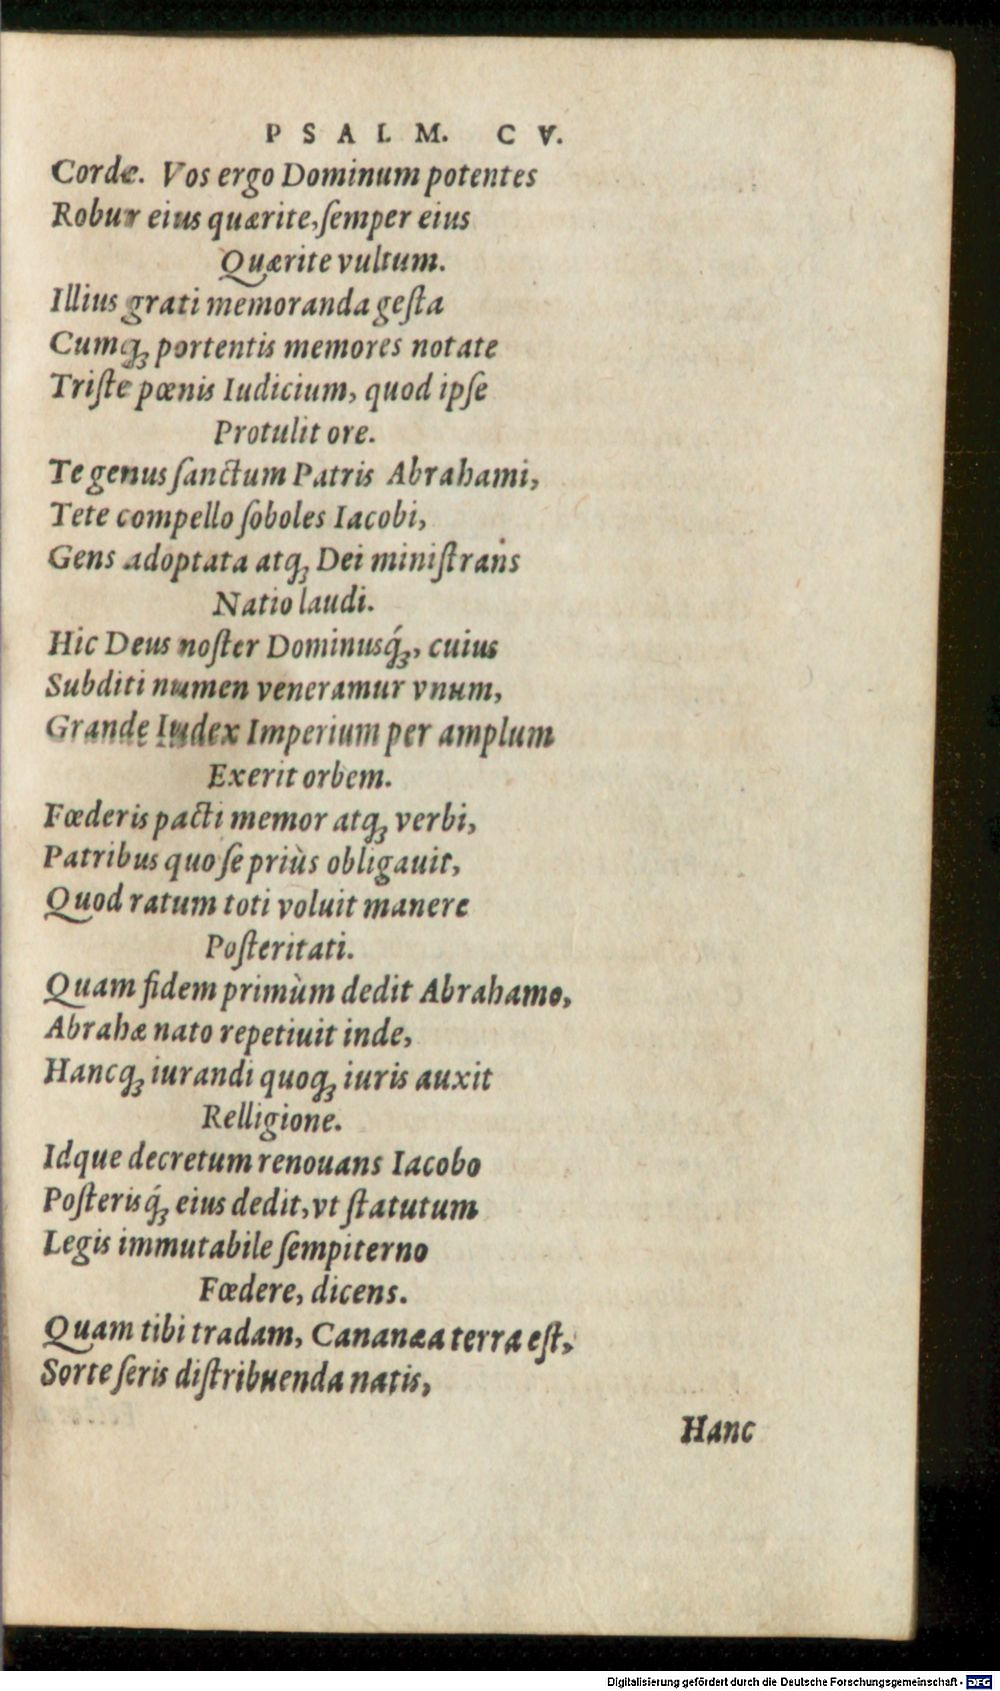 PSALM. CV.
Corde. Vos ergo Dominum potentes
Robur eius quærite, ſemper eius
Quærite vultum.
Illius grati memoranda geſta
Cumq́ꝫ portentis memores notate
Triſte pœnis Iudicium, quod ipſe
Protulit ore.
Te genus ſanctum Patris Abrahami,
Tete compello ſoboles Iacobi,
Gens adoptata atqꝫ Dei miniſtrans
Natio laudi.
Hic Deus noſter Dominusq́ꝫ, cuius
Subditi numen veneramur vnum,
Grande Iudex Imperium per amplum
Exerit orbem.
Fœderis pacti memor atqꝫ verbi,
Patribus quo ſe priùs obligauit,
Quod ratum toti voluit manere
Poſteritati.
Quam fidem primùm dedit Abrahamo,
Abrahæ nato repetiuit inde,
Hancqꝫ iurandi quoqꝫ iuris auxit
Relligione.
Idque decretum renouans Iacobo
Poſterisq́ꝫ eius dedit, vt ſtatutum
Legis immutabile ſempiterno
Fœdere, dicens.
Quam tibi tradam, Cananæa terra eſt,
Sorte ſeris diſtribuenda natis,
Hanc
Digitalisierung gefördert durch die Deutsche Forschungsgemeinschaft - DFG